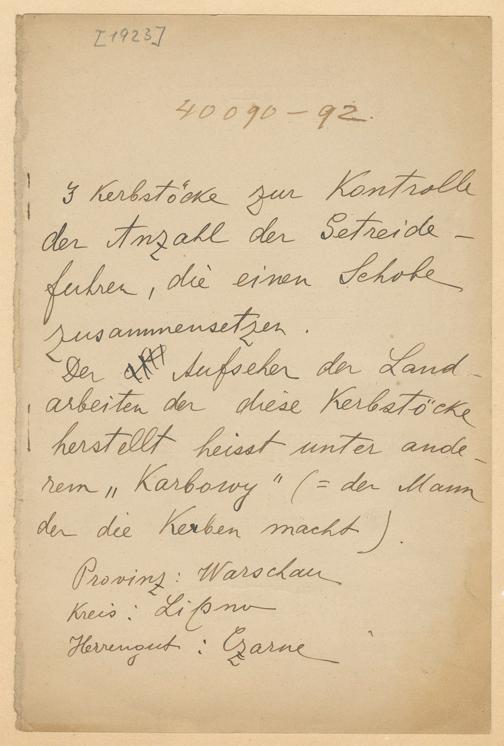 [1923]
40090-92.
3 Kerbstöcke zur Kontrolle
der Anzahl der Getreide-
fuhren, die einen Schobe
zusammensetzen.
Der Aufseher der Land-
arbeiten der diese Kerbstöcke
herstellt heisst unter ande-
rem „Karbowy" (= der Mann
der die Kerben macht).
Provinz: Warschau
Kreis: Lipno
Herrengut: Czarne